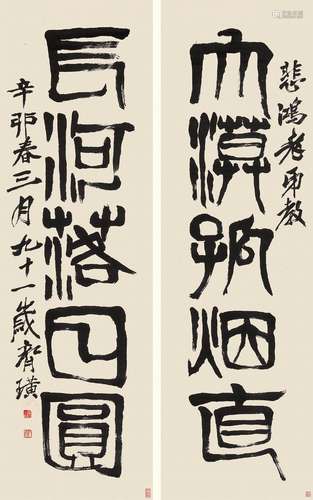 悲鸿老弟教
大漠孤烟直
长河落日圆
辛卯春三月九十一岁齐璜